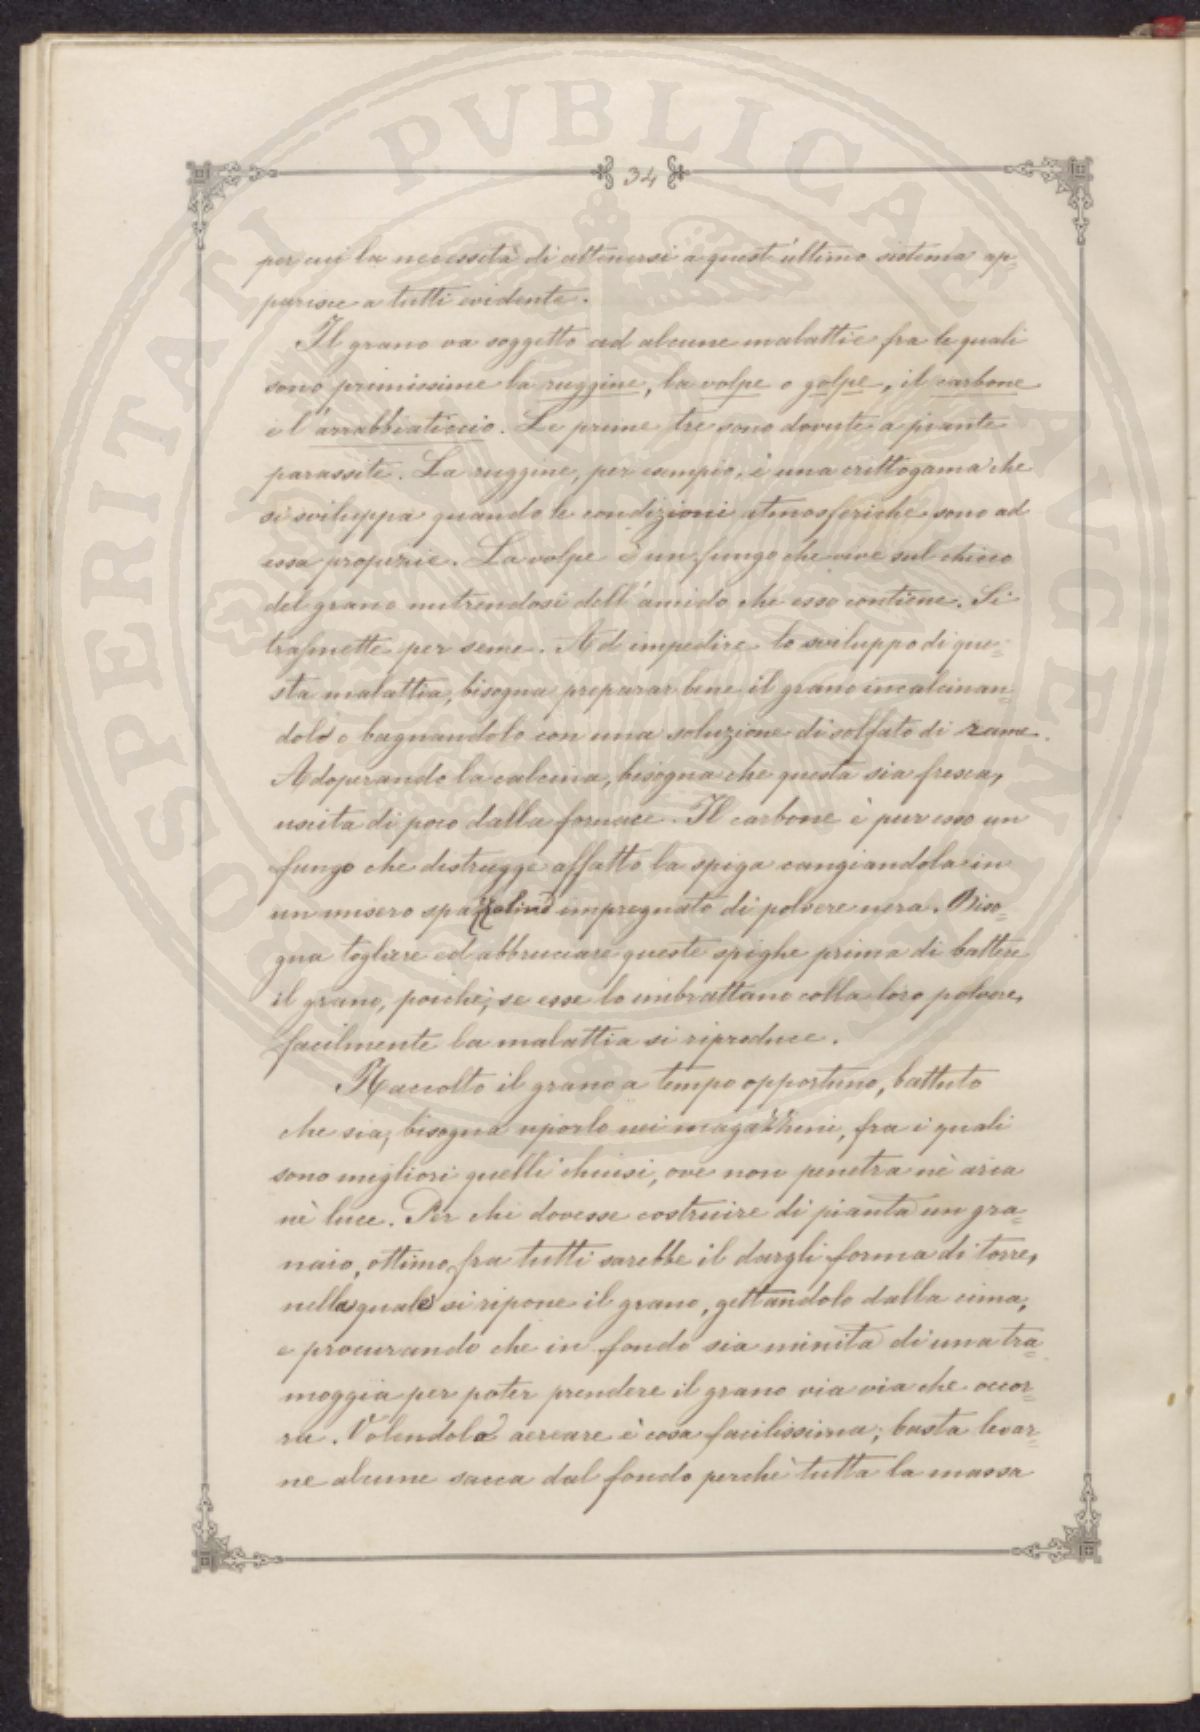 PROSPERITATI PUBLICAE AUGENDAE
34
per cui la necessità di attenersi a quest'ultimo sistema ap=
parisce a tutti evidente.
Il grano va soggetto ad alcune malattie fra le quali
sono primissime la ruggine, la volpe o golpe, il carbone
e l'arrabbiaticcio. Le prime tre sono dovute a piante
parassite. La ruggine, per esempio, è una crittogama che
si sviluppa quando le condizioni atmosferiche sono ad
essa propizie. La volpe è un fungo che vive sul chicco
del grano nutrendosi dell'amido che esso contiene. Si
trasmette per seme. Ad impedire lo sviluppo di que=
sta malattia, bisogna preparar bene il grano incalcinan=
dolo o bagnandolo con una soluzione di solfato di rame.
Adoperando la calcina, bisogna che questa sia fresca,
uscita di poco dalla fornace. Il carbone è pur esso un
fungo che distrugge affatto la spiga cangiandola in
un misero spazzolino impregnato di polvere nera. Biso=
gna togliere ed abbruciare queste spighe prima di battere
il grano, poichè, se esse lo imbrattano colla loro polvere,
facilmente la malattia si riproduce.
Raccolto il grano a tempo opportuno, battuto
che sia, bisogna riporlo nei magazzini, fra i quali
sono migliori quelli chiusi, ove non penetra nè aria
nè luce. Per chi dovesse costruire di pianta un gra=
naio, ottimo fra tutti sarebbe il dargli forma di torre,
nella quale si ripone il grano, gettandolo dalla cima,
e procurando che in fondo sia munita di una tra=
moggia per poter prendere il grano via via che occor=
ra. Volendolo aereare è cosa facilissima; basta levar=
ne alcune sacca dal fondo perchè tutta la massa